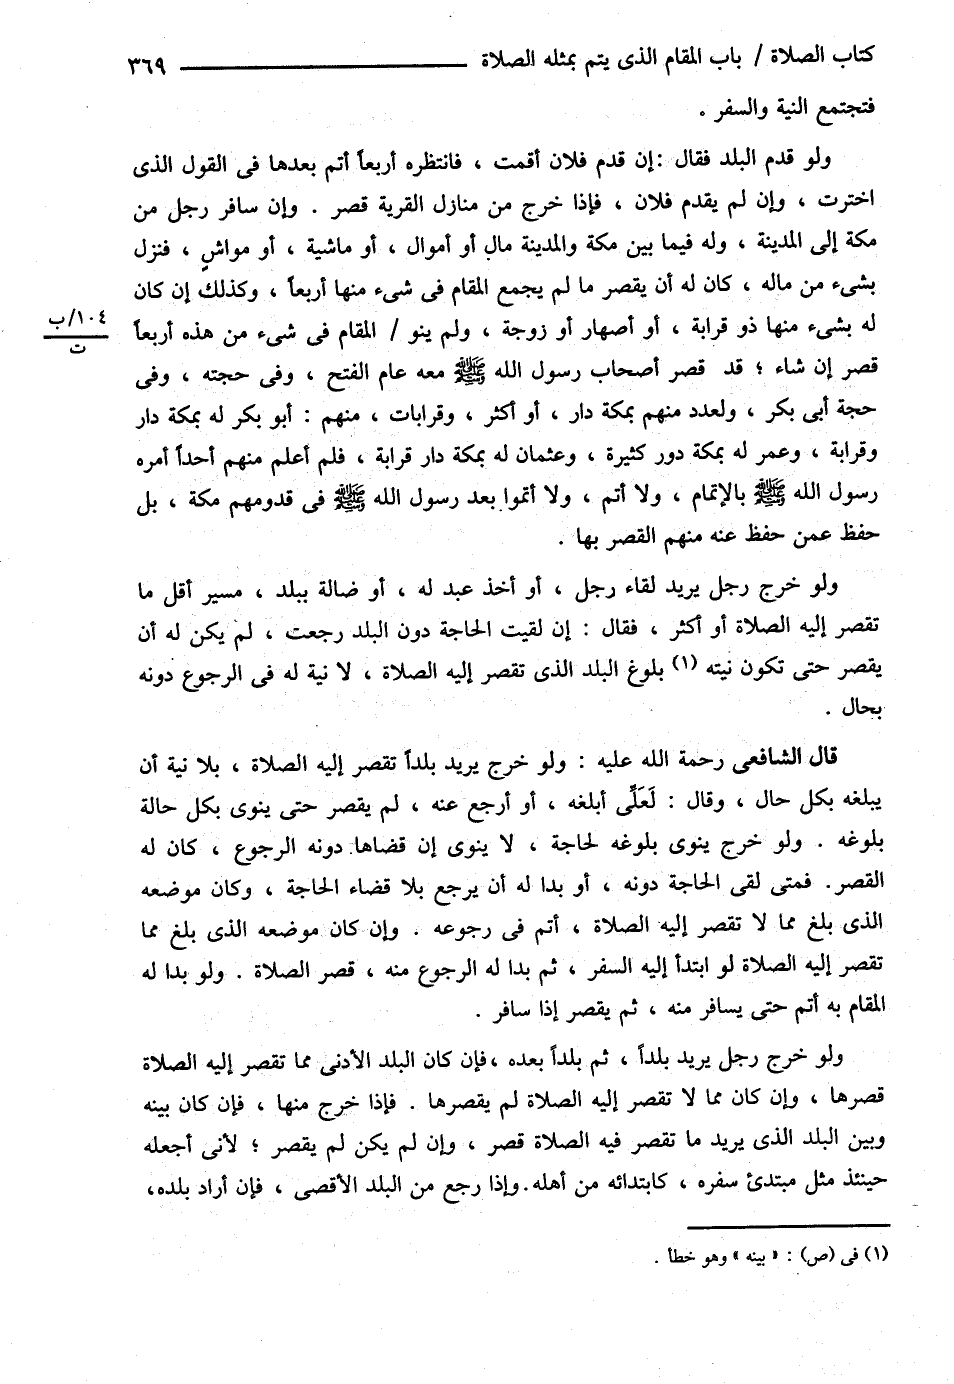 كتاب الصلاة / باب المقام الذى يتم بمثله الصلاة ــــــــــــــــ ٣٦٩
فتجتمع النية والسفر .
ولو قدم البلد فقال :إن قدم فلان أقمت ، فانتظره أربعاً أتم بعدها فى القول الذى
اخترت ، وإن لم يقدم فلان ، فإذا خرج من منازل القرية قصر . وإن سافر رجل من
مكة إلى المدينة ، وله فيما بين مكة والمدينة مال أو أموال ، أو ماشية ، أو مواشٍ ، فنزل
بشىء من ماله ، كان له أن يقصر ما لم يجمع المقام فى شىء منها أربعاً ، وكذلك إن كان
له بشىء منها ذو قرابة ، أو أصهار أو زوجة ، ولم ينو / المقام فى شىء من هذه أربعاً
١٠٤/ب
ت
قصر إن شاء ؛ قد قصر أصحاب رسول الله ﷺ معه عام الفتح ، وفى حجته ، وفى
حجة أبى بكر ، ولعدد منهم بمكة دار ، أو أكثر ، وقرابات ، منهم : أبو بكر له بمكة دار
وقرابة ، وعمر له بمكة دور كثيرة ، وعثمان له بمكة دار قرابة ، فلم أعلم منهم أحداً أمره
رسول الله ﷺ بالإتمام ، ولا أتم ، ولا أتموا بعد رسول الله ﷺ فى قدومهم مكة ، بل
حفظ عمن حفظ عنه منهم القصر بها .
ولو خرج رجل يريد لقاء رجل ، أو أخذ عبد له ، أو ضالة ببلد ، مسير أقل ما
تقصر إليه الصلاة أو أكثر ، فقال : إن لقيت الحاجة دون البلد رجعت ، لم يكن له أن
يقصر حتى تكون نيته (١) بلوغ البلد الذى تقصر إليه الصلاة ، لا نية له فى الرجوع دونه
بحال .
قال الشافعى رحمة الله عليه : ولو خرج يريد بلداً تقصر إليه الصلاة ، بلا نية أن
يبلغه بكل حال ، وقال : لَعَلِّى أبلغه ، أو أرجع عنه ، لم يقصر حتى ينوى بكل حالة
بلوغه . ولو خرج ينوى بلوغه لحاجة ، لا ينوى إن قضاها دونه الرجوع ، كان له
القصر. فمتى لقى الحاجة دونه ، أو بدا له أن يرجع بلا قضاء الحاجة ، وكان موضعه
الذى بلغ مما لا تقصر إليه الصلاة ، أتم فى رجوعه . وإن كان موضعه الذى بلغ مما
تقصر إليه الصلاة لو ابتدأ إليه السفر ، ثم بدا له الرجوع منه ، قصر الصلاة . ولو بدا له
المقام به أتم حتى يسافر منه ، ثم يقصر إذا سافر .
ولو خرج رجل يريد بلداً ، ثم بلداً بعده ،فإن كان البلد الأدنى مما تقصر إليه الصلاة
قصرها ، وإن كان مما لا تقصر إليه الصلاة لم يقصرها . فإذا خرج منها ، فإن كان بينه
وبين البلد الذى يريد ما تقصر فيه الصلاة قصر ، وإن لم يكن لم يقصر ؛ لأنى أجعله
حينئذ مثل مبتدئ سفره ، كابتدائه من أهله.وإذا رجع من البلد الأقصى ، فإن أراد بلده،
(١) فى (ص) : « بينه » وهو خطأ .